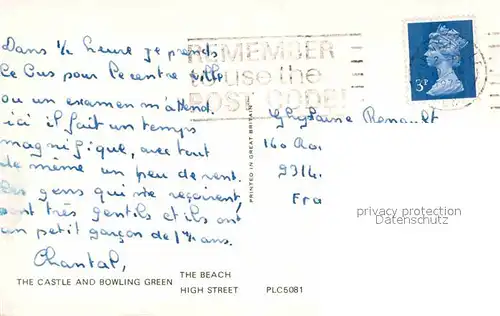 Dans 1/2 heure je prends
le bus pour le centre ville
ou un examen m'attend.
ici il fait un temps
magnifique, avec tout
de même un peu de vent.
Les gens qui me reçoivent,
sont très gentils et ils ont
un petit garçon de 1 1/2 ans.
Chantal,
REMEMBER
to use the
POST CODE!
3P
PRINTED IN GREAT BRITAIN
Ghyslaine Renault
160
9314
Fra
privacy protection
Datenschutz
THE BEACH
THE CASTLE AND BOWLING GREEN
HIGH STREET PLC5081